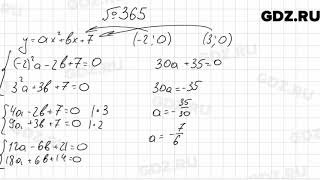 GDZ.RU
№365
y=ax²+bx+7 (-2;0) (3;0)
{(-2)²a-2b+7=0
3²a+3b+7=0
{4a-2b+7=0 |·3
9a+3b+7=0 |·2
{12a-6b+21=0
18a+6b+14=0
30a+35=0
30a=-35
a=-35/30
a=-7/6
GDZ.RU